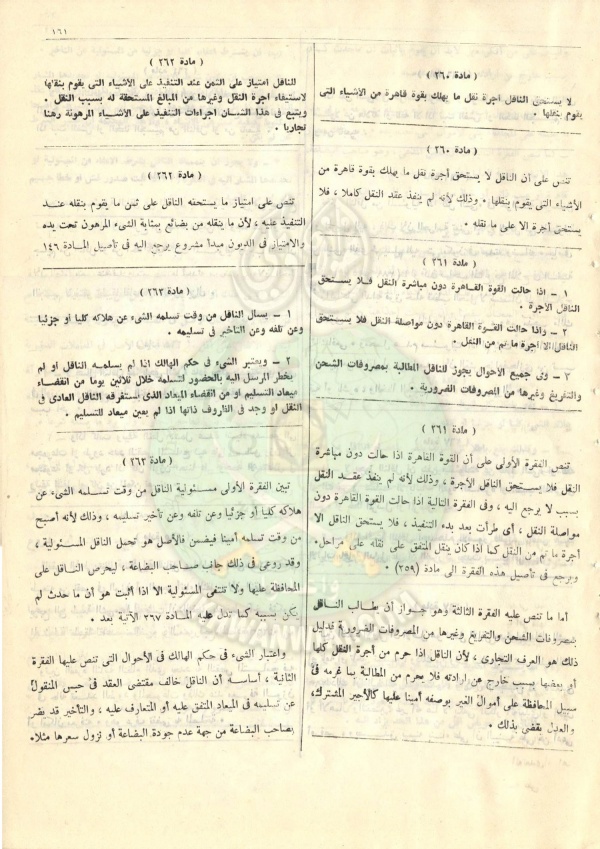 ١٦١
( مادة ٢٦٠ )
لا يستحق الناقل اجرة نقل ما يهلك بقوة قاهرة من الأشياء التى
يقوم بنقلها .
( مادة ٢٦٠ )
تنص على أن الناقل لا يستحق أجرة نقل ما يهلك بقوة قاهرة من
الأشياء التى يقوم بنقلها . وذلك لأنه لم ينفذ عقد النقل كاملا ، فلا
يستحق أجرة الا على ما نقله .
( مادة ٢٦١ )
١ – اذا حالت القوة القاهرة دون مباشرة النقل فلا يستحق
الناقل الأجرة .
٢ – واذا حالت القوة القاهرة دون مواصلة النقل فلا يستحق
الناقل الا اجرة ما تم من النقل .
٣ – وفى جميع الأحوال يجوز للناقل المطالبة بمصروفات الشحن
والتفريغ وغيرها من المصروفات الضرورية .
( مادة ٢٦١ )
تنص الفقرة الأولى على أن القوة القاهرة اذا حالت دون مباشرة
النقل فلا يستحق الناقل الأجرة ، وذلك لأنه لم ينفذ عقد النقل
بسبب لا يرجع اليه ، وفى الفقرة الثانية اذا حالت القوة القاهرة دون
مواصلة النقل ، أى طرأت بعد بدء التنفيذ ، فلا يستحق الناقل الا
أجرة ما تم من النقل كما اذا كان ينقل المتفق على نقله على مراحل.
ويرجع فى تأصيل هذه الفقرة الى مادة (٢٥٩) .
أما ما تنص عليه الفقرة الثالثة وهو جواز أن يطالب الناقل
بمصروفات الشحن والتفريغ وغيرها من المصروفات الضرورية فدليل
ذلك هو العرف التجارى ، لأن الناقل اذا حرم من أجرة النقل كلها
أو بعضها بسبب خارج عن ارادته فلا يحرم من المطالبة بما غرمه فى
سبيل المحافظة على أموال الغير بوصفه أمينا عليها كالأجير المشترك،
والعدل يقضى بذلك .
( مادة ٢٦٢ )
للناقل امتياز على الثمن عند التنفيذ على الأشياء التى يقوم بنقلها
لاستيفاء اجرة النقل وغيرها من المبالغ المستحقة له بسبب النقل .
ويتبع فى هذا الشان اجراءات التنفيذ على الأشياء المرهونة رهنا
تجاريا .
( مادة ٢٦٢ )
تنص على امتياز ما يستحقه الناقل على ثمن ما يقوم بنقله عند
التنفيذ عليه ، لأن ما ينقله من بضائع بمثابة الشىء المرهون تحت يده
والامتياز فى الديون مبدأ مشروع يرجع اليه فى تأصيل المادة ١٤٦
( مادة ٢٦٣ )
١ – يسال الناقل من وقت تسلمه الشىء عن هلاكه كليا او جزئيا
وعن تلفه وعن التاخير فى تسليمه .
٢ – ويعتبر الشىء فى حكم الهالك اذا لم يسلمه الناقل او لم
يخطر المرسل اليه بالحضور لتسلمه خلال ثلاثين يوما من انقضاء
ميعاد التسليم او من انقضاء الميعاد الذى يستغرقه الناقل العادى فى
النقل او وجد فى الظروف ذاتها اذا لم يعين ميعاد للتسليم .
( مادة ٢٦٣ )
تبين الفقرة الأولى مسئولية الناقل من وقت تسلمه الشىء عن
هلاكه كليا أو جزئيا وعن تلفه وعن تأخير تسليمه ، وذلك لأنه أصبح
من وقت تسلمه أمينا فيضمن فالأصل هو تحمل الناقل المسئولية ،
وقد روعى فى ذلك جانب صاحب البضاعة ، ليحرص الناقل على
المحافظة عليها ولا تنتفى المسئولية الا اذا أثبت هو أن ما حدث لم
يكن بسببه كما تدل عليه المادة ٢٦٧ الآتية بعد .
واعتبار الشىء فى حكم الهالك فى الأحوال التى تنص عليها الفقرة
الثانية ، أساسه أن الناقل خالف مقتضى العقد فى حبس المنقول
عن تسليمه فى الميعاد المتفق عليه أو المتعارف عليه ، والتأخير قد يضر
بصاحب البضاعة من جهة عدم جودة البضاعة أو نزول سعرها مثلا.